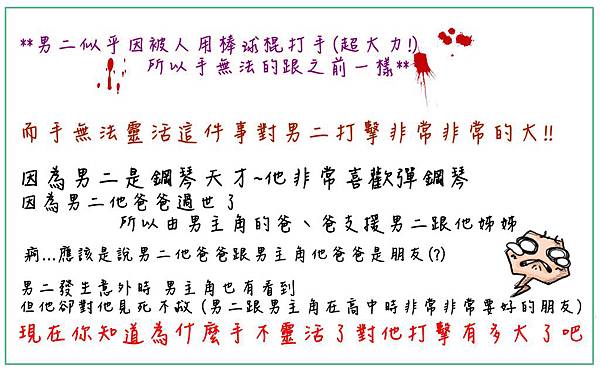 **男二似乎因被人用棒球棍打手(超大力!)
所以手無法的跟之前一樣**
而手無法靈活這件事對男二打擊非常非常的大!!
因為男二是鋼琴天才~他非常喜歡彈鋼琴
因為男二他爸爸過世了
所以由男主角的爸、爸支援男二跟他姊姊
痾...應該是說男二他爸爸跟男主角他爸爸是朋友(?)
男二發生意外時 男主角也有看到
但他卻對他見死不救 (男二跟男主角在高中時非常非常要好的朋友)
現在你知道為什麼手不靈活了對他打擊有多大了吧